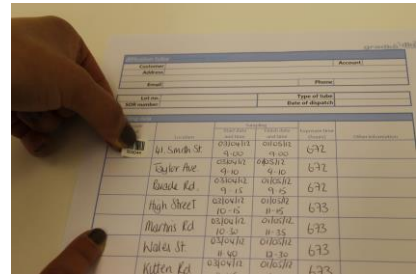 diffusion tubes
Customer Account
Address
Email Phone
Lot no. Type of tube
SOR number Date of dispatch
Location Start date and time Finish date and time Exposure time (hours)
41. Smith St. 03/04/12 9-00 01/05/12 9-00 672
Taylor Ave 03/04/12 9-10 01/05/12 9-10 672
Quade Rd. 03/04/12 9-15 01/05/12 9-15 672
High Street 03/04/12 10-15 01/05/12 11-15 673
Martins Rd 03/04/12 10-50 01/05/12 11-35 673
Wales St. 03/04/12 11-40 01/05/12 12-30 673
Kitten Rd 03/04/12 01/05/12